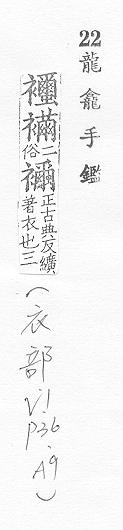 22 龍龕手鑑
二俗襧正古典反纊著衣也三
(衣部 V1 P36. A9)